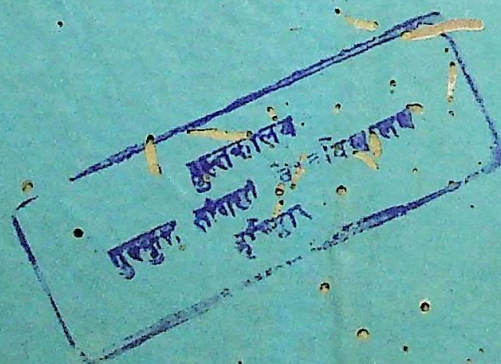 पुस्तकालय
गुरुकुल, कांगड़ी विश्वविद्यालय
हरिद्वार